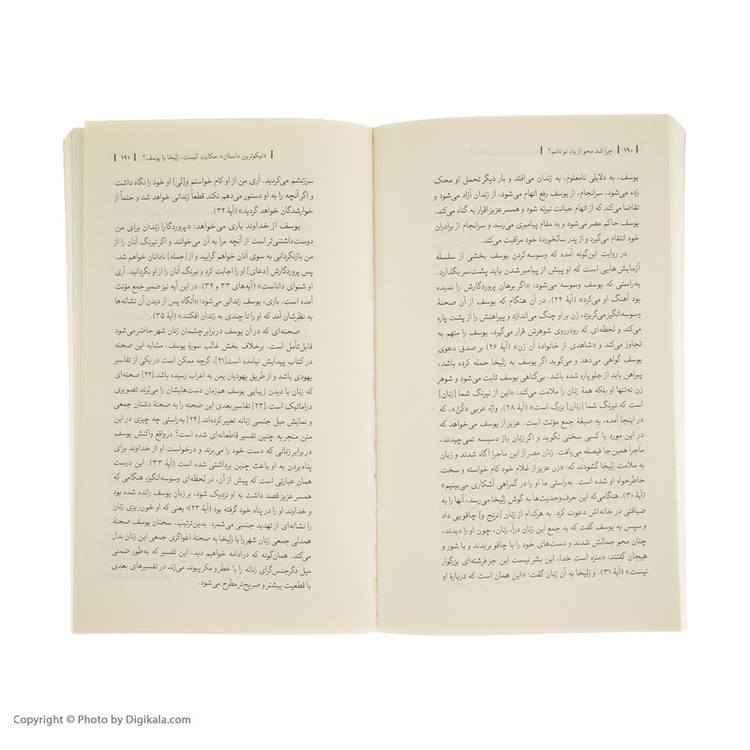 ۱۹۰ | چرا شد محو از یاد تو نامم؟
یوسف، به دلایلی نامعلوم، به زندان می‌افتد و بار دیگر تحمل او محک
زده می‌شود. سرانجام، از یوسف رفع اتهام می‌شود، از زندان آزاد می‌شود و
تقاضا می‌کند که از اتهام خیانت تبرئه شود و همسر عزیز اقرار به گناه می‌کند.
یوسف حاکم مصر می‌شود و به مقام پیامبری می‌رسد و سرانجام از برادران
خود انتقام می‌گیرد و از پدر سالخوردهٔ خود مراقبت می‌کند.
در روایت این‌گونه آمده که وسوسه‌کردن یوسف بخشی از سلسله
آزمایش‌هایی است که او پیش از پیامبر شدن باید پشت‌سر بگذارد.
به‌راستی که یوسف وسوسه می‌شود: «اگر برهان پروردگارش را ندیده
بود آهنگ او می‌کرد» (آیهٔ ۲۴). در آن هنگام که یوسف از آن صحنهٔ
وسوسه‌انگیز می‌گریزد، زن او چنگ می‌اندازد و پیراهنش را از پشت پاره
می‌کند و لحظه‌ای که رودرروی شوهرش قرار می‌گیرد، یوسف را متهم به
تجاوز می‌کند و «شاهدی از خانوادهٔ آن زن» (آیهٔ ۲۶) بر صدق دعوی
یوسف گواهی می‌دهد و می‌گوید اگر یوسف به زلیخا حمله کرده باشد،
پیراهن باید از جلو پاره شده باشد. بی‌گناهی یوسف ثابت می‌شود و شوهر
زن نه‌تنها او بلکه همهٔ زنان را ملامت می‌کند: «این از نیرنگ شما [زنان]
است که نیرنگ شما [زنان] بزرگ است» (آیهٔ ۲۸). واژه عربی «کُنَّ»، که
در اینجا آمده، به صیغهٔ جمع مؤنث است. عزیز از یوسف می‌خواهد که
در این مورد با کسی سخنی نگوید و اگر زنان باز دسیسه نمی‌چیدند،
ماجرا همین‌جا فیصله می‌یافت. زنان مصر از این ماجرا آگاه شدند و زبان
به ملامت زلیخا گشودند که: «زن عزیز از غلام خود کام خواسته و سخت
خاطرخواه او شده است. به‌راستی ما او را در گمراهی آشکاری می‌بینیم»
(آیهٔ ۳۰). هنگامی‌که این حرف‌وحدیث‌ها به گوش زلیخا می‌رسد، آنها را به
ضیافتی در خانه‌اش دعوت کرد. به هرکدام از زنان [ترنج و] چاقویی داد
و سپس به یوسف گفت که به جمع این زنان درآ، زنان، چون او را دیدند،
چنان محو جمالش شدند و دست‌های خود را با چاقو بریدند و با شور و
هیجان گفتند: «منزه است خدا، این بشر نیست این جز فرشته‌ای بزرگوار
نیست» (آیهٔ ۳۱). و زلیخا به آن زنان گفت: «این همان است که دربارهٔ او
«نیکوترین داستان» حکایت کیست، زلیخا یا یوسف؟ | ۱۹۱
سرزنشم می‌کردید. آری من از او کام خواستم و[لی] او خود را نگاه داشت
و اگر آنچه را به او دستور می‌دهم نکند قطعاً زندانی خواهد شد و حتماً از
خوارشدگان خواهد گردید» (آیهٔ ۳۲).
یوسف از خداوند یاری می‌خواهد: «پروردگارا زندان برای من
دوست‌داشتنی‌تر است از آنچه مرا به آن می‌خوانند و اگر نیرنگ آنان را از
من بازنگردانی به سوی آنان خواهم گرایید و از [جمله] نادانان خواهم شد.
پس پروردگارش [دعای] او را اجابت کرد و نیرنگ آنان را از او بگردانید. آری
او شنوای داناست» (آیه‌های ۳۳ و ۳۴). در این آیه نیز ضمیر جمع مؤنث
آمده است. باری، یوسف زندانی می‌شود: «آنگاه پس از دیدن آن نشانه‌ها
به نظرشان آمد که او را تا چندی به زندان افکنند» (آیهٔ ۳۵).
صحنه‌ای که در آن یوسف در برابر چشمان زنان شهر حاضر می‌شود
قابل‌تأمل است. برخلاف بخش غالب سورهٔ یوسف، مشابه این صحنه
در کتاب پیدایش نیامده است[۲۱]، گرچه ممکن است در یکی از تفاسیر
یهودی باشد و از طریق یهودیان یمن به اعراب رسیده باشد.[۲۲] صحنه‌ای
که زنان با دیدن زیبایی یوسف هم‌زمان دست‌هایشان را می‌بُرند تصویری
دراماتیک است [۲۳] تفاسیر بعدی این صحنه را به صحنهٔ داستان جمعی
و نمایش میل جنسی زنانه تعبیر کرده‌اند.[۲۴] به‌راستی چه چیزی در این
متن منجر به چنین تفسیر قاطعانه‌ای شده است؟ درواقع واکنش یوسف
در برابر زنانی که دست خود را می‌برند و درخواست او از خداوند برای
پناه بردن به او باعث چنین برداشتی شده است (آیهٔ ۳۳). این درست
همان عبارتی است که پیش از آن، در لحظه‌ای وسوسه‌انگیز، هنگامی که
همسر عزیز قصد داشت به او نزدیک شود، بر زبان یوسف رانده شده بود
و خداوند او را در پناه خود گرفته بود (آیهٔ ۲۳)؛ یعنی که او خون‌ریزی زنان
را نشانه‌ای از تهدید جنسی می‌شمرد. بدین‌ترتیب، سخنان یوسف صحنهٔ
همدلی جمعی زنان شهر را با زلیخا به صحنهٔ اغواگری جمعی این زنان بدل
می‌کند. همان‌گونه که در ادامه خواهیم دید، این تفسیر که به‌طور ضمنی
میل دگرجنس‌گرای زنانه را با خطر و مکر پیوند می‌زند در تفسیرهای بعدی
با قطعیت بیشتر و صریح‌تر مطرح می‌شود.
Copyright © Photo by Digikala.com